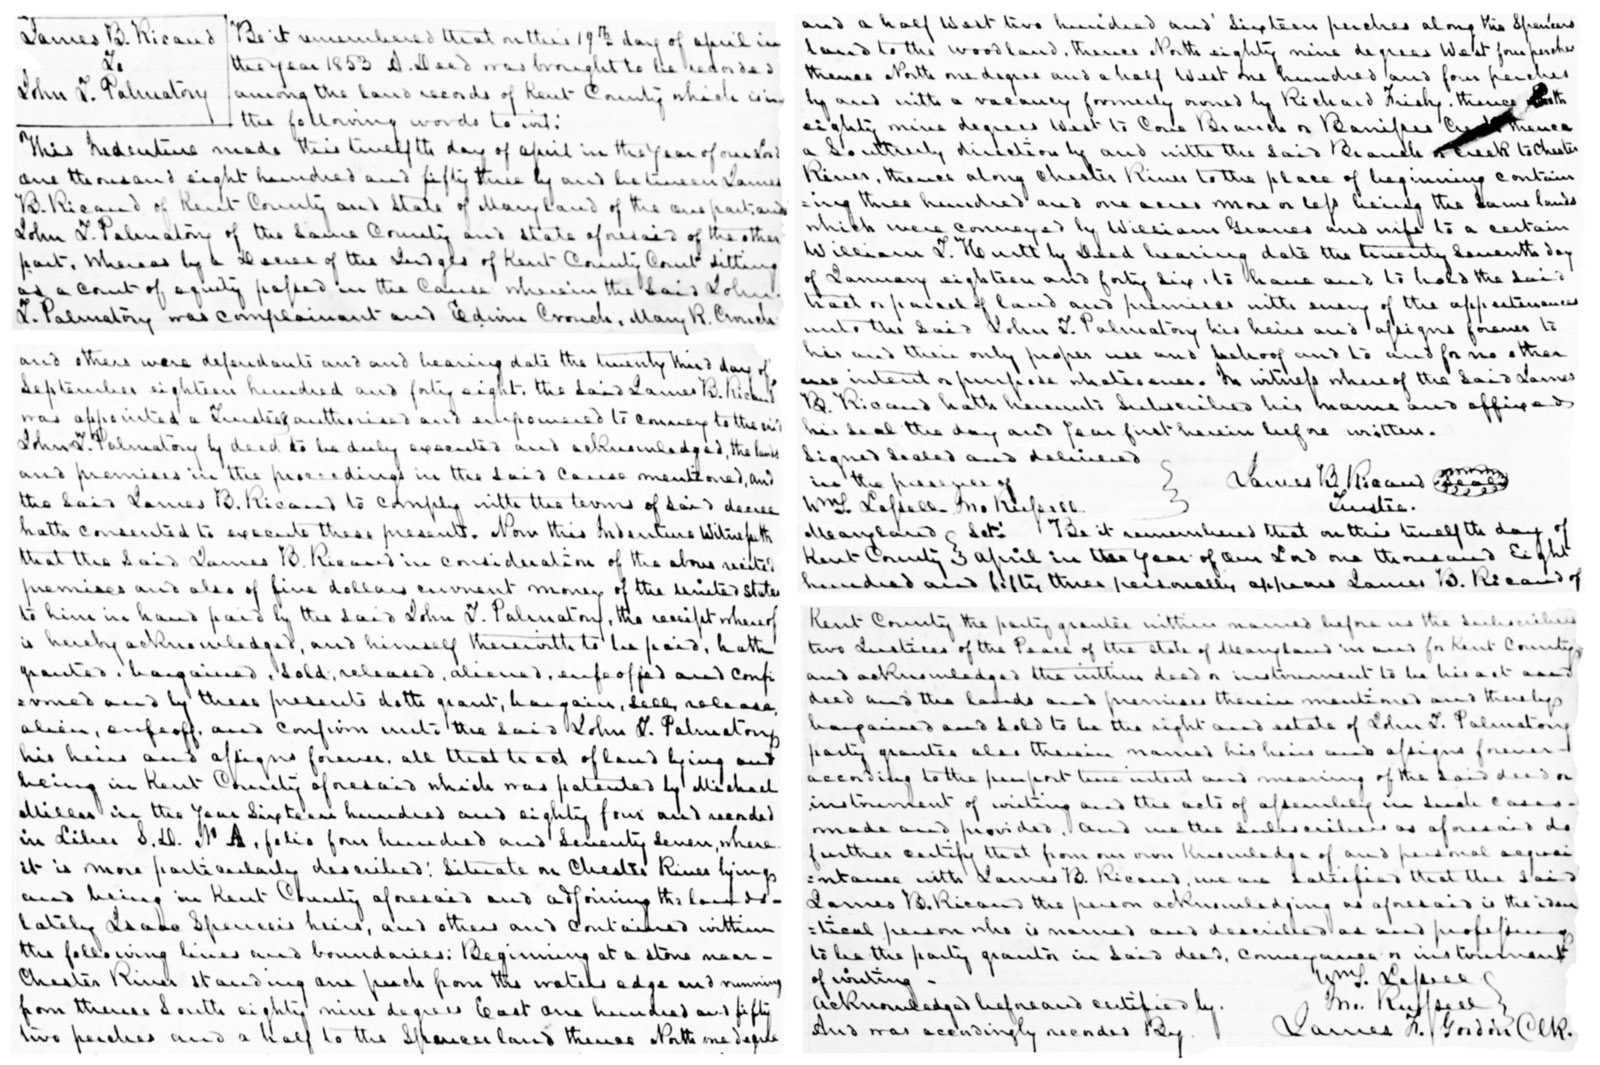 James B. Ricaud
To
John T. Palmatory
Be it remembered that on this 19th day of april in
the year 1853 A. Deed was brought to be recorded
among the land records of Kent County which is in
the following words to wit:
This Indenture made this twelfth day of april in the Year of our Lord
one thousand eight hundred and fifty three by and between James
B. Ricaud of Kent County and State of Maryland of the one part and
John T. Palmatory of the same County and state aforesaid of the other
part. Whereas by a Decree of the Judges of Kent County Court sitting
as a court of equity passed in the cause wherein the said John
T. Palmatory was complainant and Edwin Crouch, Mary R. Crouch
and others were defendants and and bearing date the twenty third day of
September eighteen hundred and forty eight. the said James B. Ricaud
was appointed a Trustee authorised and empowered to convey to the said
John T. Palmatory by deed to be duly executed and acknowledged, the lands
and premises in the proceedings in the said cause mentioned, and
the said James B. Ricaud to comply with the terms of said decree
hath consented to execute these presents. Now this Indenture Witnesseth
that the said James B. Ricaud in consideration of the above recited
premises and also of five dollars current money of the united states
to him in hand paid by the said John T. Palmatory, the receipt whereof
is hereby acknowledged, and himself therewith to be paid, hath
granted, bargained, sold, released, aliened, enfeoffed and confi
=rmed and by these presents doth grant, bargain, sell, release,
alien, enfeoff, and confirm unto the said John T. Palmatory
his heirs and assigns forever. all that tract of land lying and
being in Kent County aforesaid which was patented by Michael
Miller in the Year Sixteen hundred and eighty four and recorded
in Liber S.D. No A, folio four hundred and seventy seven, where
it is more particularly described: Situate on Chester River lying
and being in Kent County aforesaid and adjoining the lands-
lately Isaac Spencers heirs, and others and contained within
the following lines and boundaries: Beginning at a stone near-
Chester River standing one perch from the waters edge and running
from thence South eighty nine degrees East one hundred and fifty
two perches and a half to the Spencer land thence North one degree
and a half West two hundred and sixteen perches along the Spencers
land to the woodland, thence North eighty nine degrees West four perches
thence North one degree and a half West one hundred and four perches
by and with a vacancy formerly owned by Richard Frisby. thence
eighty nine degrees West to Cove Branch or thence
a Southerly direction by and with the said Branch or creek to Chester
River, thence along Chester River to the place of beginning contain
=ing three hundred and one acres more or less being the same lands
which were conveyed by William Graves and wife to a certain
William T. Hurtt by Deed bearing date the twenty seventh day
of January eighteen and forty six. to have and to hold the said
tract or parcel of land and premises with every of the appertenances
unto the said John T. Palmatory his heirs and assigns forever to
his and their only proper use and behoof and to and for no other
use intent or purpose whatsoever. In witness whereof the said James
B. Ricaud hath hereunto subscribed his name and affixed
his seal the day and Year first herein before written.
Signed sealed and delivered
in the presence of
Wm T. Lassell Jno Russell
James B Ricaud Seal
Trustee.
Maryland Sct: Be it remembered that on this twelfth day of
Kent County april in the Year of Our Lord one thousand Eight
hundred and fifty three personally appears James B. Ricaud of
Kent County the party grantor within named before us the subscribers
two Justices of the Peace of the state of Maryland in and for Kent County
and acknowledged the within deed or instrument to be his act and
deed and the lands and premises therein mentioned and thereby
bargained and sold to be the right and estate of John T. Palmatory
party grantee also therein named his heirs and assigns forever-
according to the purport true intent and meaning of the said deed or
instrument of writing and the acts of assembly in such cases-
made and provided. And we the subscribers as aforesaid do
further certify that from our own knowledge of and personal acquai
=ntance with James B. Ricaud, we are satisfied that the said
James B. Ricaud the person acknowledging as aforesaid is the iden
=tical person who is named and described as and professing
to be the party grantor in said deed, conveyance or instrument
of writing -
Acknowledged before and certified by.
Wm T. Lassell
Jno Russell
And was accordingly recorded By.
James F. Gordon Clk.